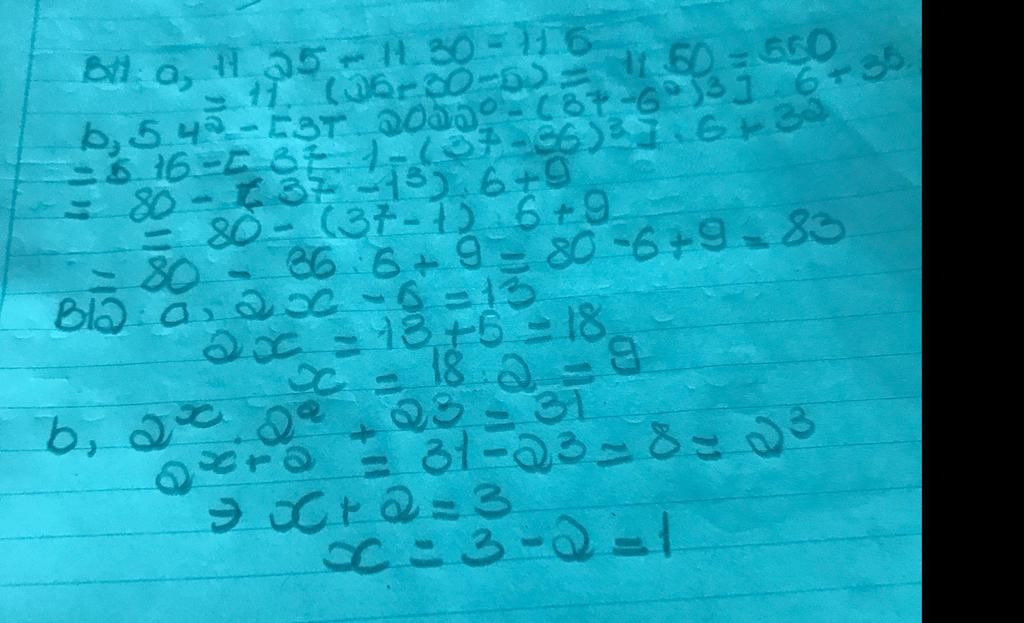 B11: a, 11 25 + 11 30 - 11 5
= 11. (25 + 30 - 5) = 11 50 = 550
b, 5 4² - [37 2022⁰ - (37 - 6²)³] : 6 + 3²
= 5 16 - [ 37 1 - (37 - 36)³ ] : 6 + 3²
= 80 - ( 37 - 1³) : 6 + 9
= 80 - (37 - 1) : 6 + 9
= 80 - 36 : 6 + 9 = 80 - 6 + 9 = 83
B12: a, 2x - 5 = 13
2x = 13 + 5 = 18
x = 18 : 2 = 9
b, 2ˣ . 2² + 23 = 31
2ˣ⁺² = 31 - 23 = 8 = 2³
⇒ x + 2 = 3
x = 3 - 2 = 1